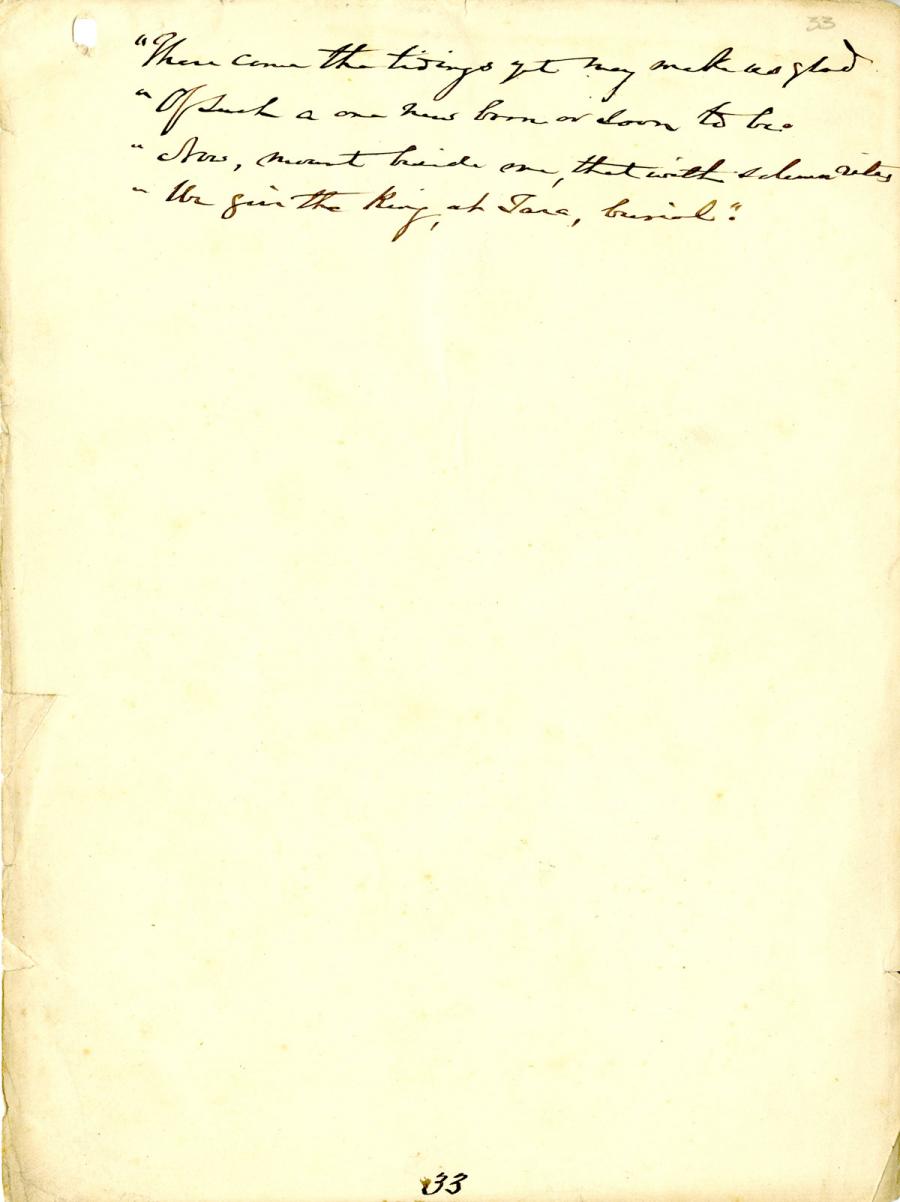 33
"There come the tidings yet may make us glad
"Of such a one new born or soon to be.
"Now, mount beside me, that with solemn rites
"We give the King, at Tara, burial".
33